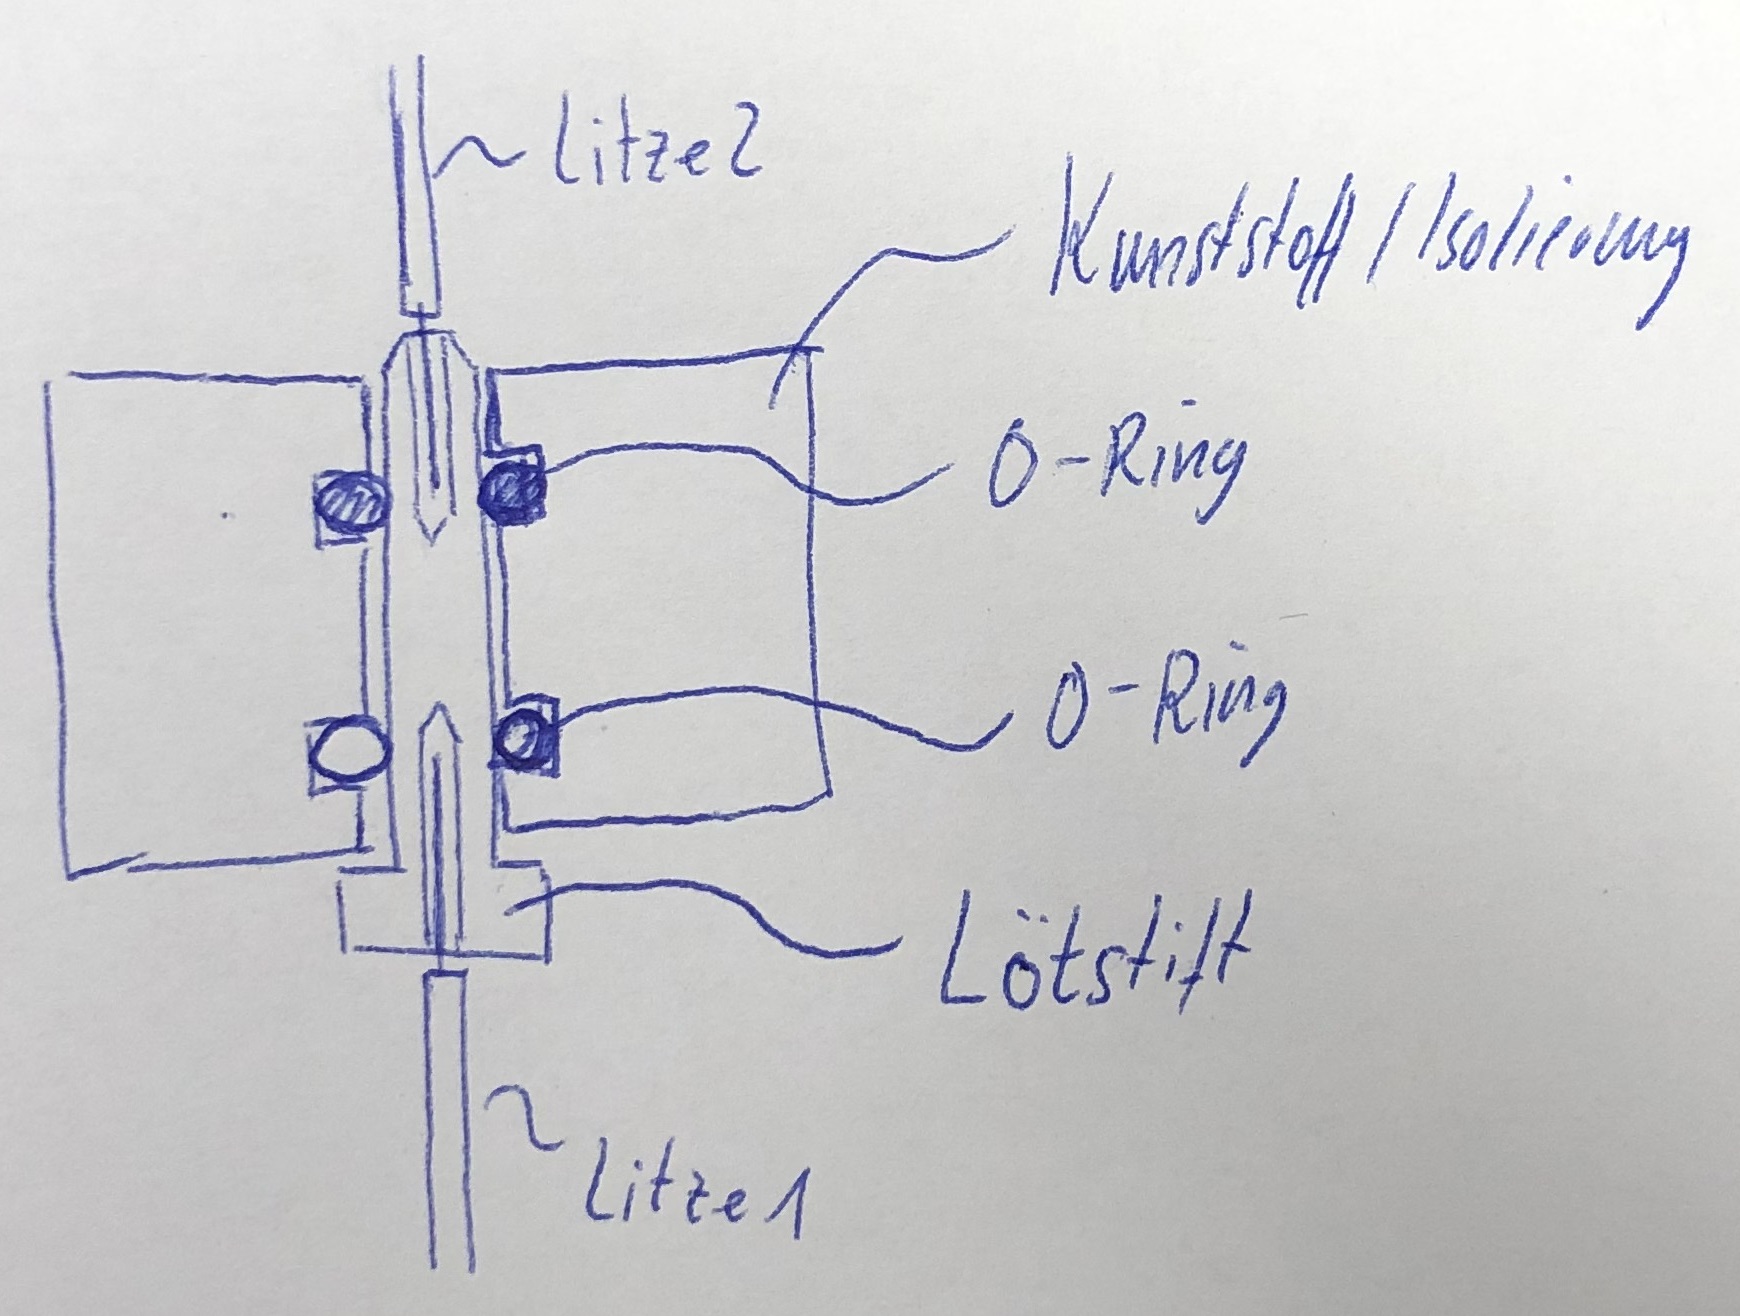 Litze 2
Kunststoff / Isolierung
O-Ring
O-Ring
Lötstift
Litze 1